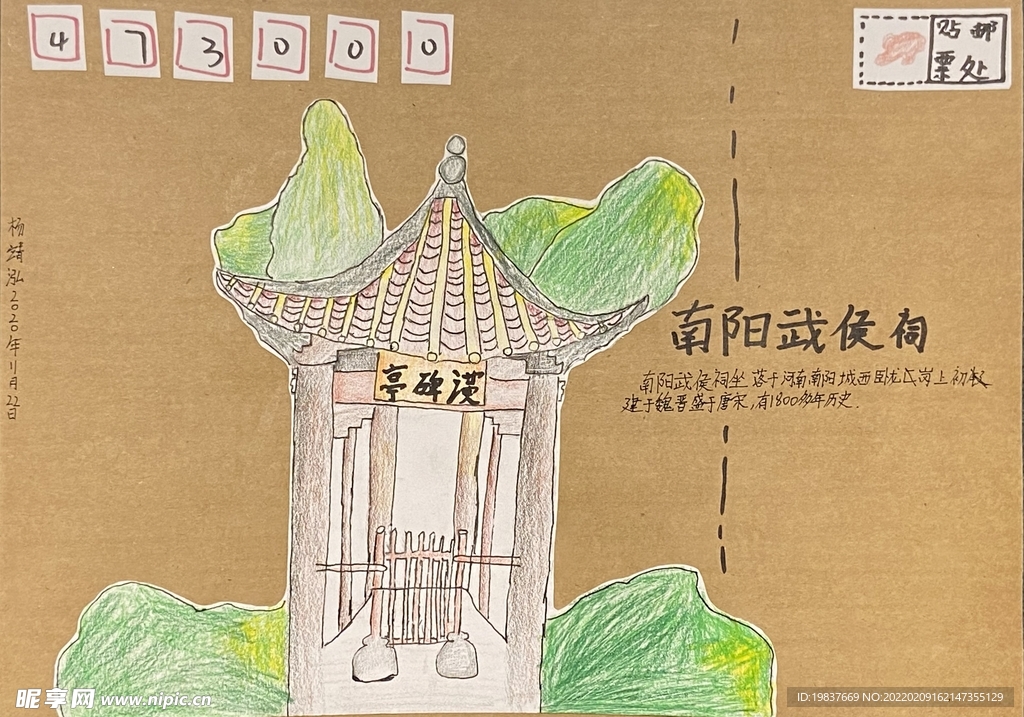 4 7 3 0 0 0
贴邮
票处
杨靖泓2020年11月22日
南阳武侯祠
南阳武侯祠坐落于河南南阳城西卧龙岗上初
建于魏晋盛于唐宋,有1800多年历史.
汉碑亭
昵享网 www.nipic.cn
ID:19837669 NO:20220209162147355129